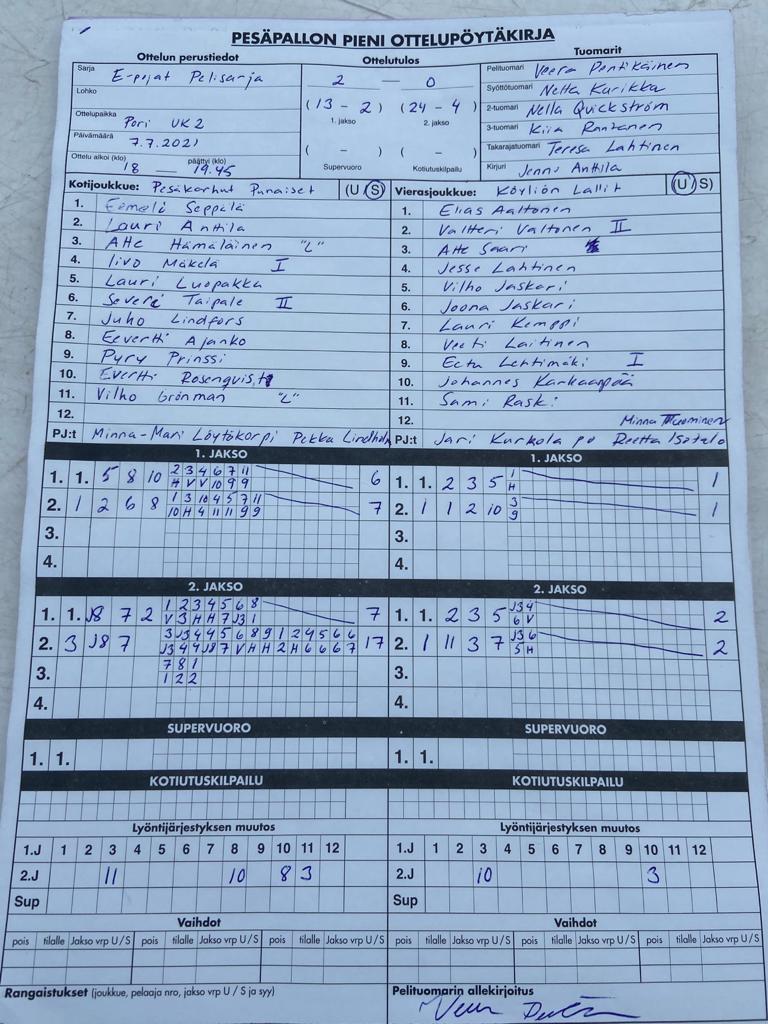 PESÄPALLON PIENI OTTELUPÖYTÄKIRJA
Ottelun perustiedot
Sarja E-pojat Pelisarja
Lohko
Ottelupaikka Pori UK2
Päivämäärä 7.7.2021
Ottelu alkoi (klo) päättyi (klo)
18 — 19.45
Ottelutulos
2 — 0
(13 - 2) (24 - 4)
1. jakso 2. jakso
( - ) ( - )
Supervuoro Kotiutuskilpailu
Tuomarit
Pelituomari Veera Pentikäinen
Syöttötuomari Netta Kurikka
2-tuomari Nella Quickström
3-tuomari Kiia Rantanen
Takarajatuomari Teresa Lahtinen
Kirjuri Jenna Anttila
Kotijoukkue: Pesäkarhut Punaiset (U/S)
1. Eemeli Seppälä
2. Lauri Anttila
3. Atte Hämäläinen "L"
4. Iivo Mäkelä I
5. Lauri Luopakka
6. Severi Taipale II
7. Juho Lindfors
8. Eevertti Ajanko
9. Pyry Prinssi
10. Evertti Rosenqvist
11. Vilho Grönman "L"
12.
PJ:t Minna-Mari Löytökorpi Pekka Lindholm
Vierasjoukkue: Köyliön Lallit (U/S)
1. Elias Aaltonen
2. Valtteri Valtonen II
3. Atte Saari
4. Jesse Lahtinen
5. Vilho Jaskari
6. Joona Jaskari
7. Lauri Kemppi
8. Veeti Laitinen
9. Eetu Lehtimäki I
10. Johannes Karhaanpää
11. Sami Raski
12. Minna Tuominen
PJ:t Jari Kurkola po Reetta Isotalo
1. JAKSO
1. 1. 5 8 10 2 3 4 6 7 11 6
H V V 10 9 9
2. 1 2 6 8 1 3 10 4 5 7 11 7
10 H 4 11 11 9 9
3.
4.
1. JAKSO
1. 1. 2 3 5 1 1
H
2. 1 1 2 10 3 1
9
3.
4.
2. JAKSO
1. 1. J8 7 2 1 2 3 4 5 6 8 7
V 3 H H 7 J3 1
2. 3 J8 7 3 J3 4 4 5 6 8 9 1 2 4 5 6 6 17
J3 4 4 J8 7 V H H 2 H 6 6 6 7
3. 7 8 1
1 2 2
4.
2. JAKSO
1. 1. 2 3 5 J3 4 2
6 V
2. 1 11 3 7 J3 6 2
5 H
3.
4.
SUPERVUORO
1. 1.
SUPERVUORO
1. 1.
KOTIUTUSKILPAILU
KOTIUTUSKILPAILU
Lyöntijärjestyksen muutos
1.J 1 2 3 4 5 6 7 8 9 10 11 12
2.J 11 10 8 3
Sup
Lyöntijärjestyksen muutos
1.J 1 2 3 4 5 6 7 8 9 10 11 12
2.J 10 3
Sup
Vaihdot
pois tilalle Jakso vrp U/S pois tilalle Jakso vrp U/S pois tilalle Jakso vrp U/S
Vaihdot
pois tilalle Jakso vrp U/S pois tilalle Jakso vrp U/S pois tilalle Jakso vrp U/S
Rangaistukset (joukkue, pelaaja nro, jakso vrp U / S ja syy)
Pelituomarin allekirjoitus